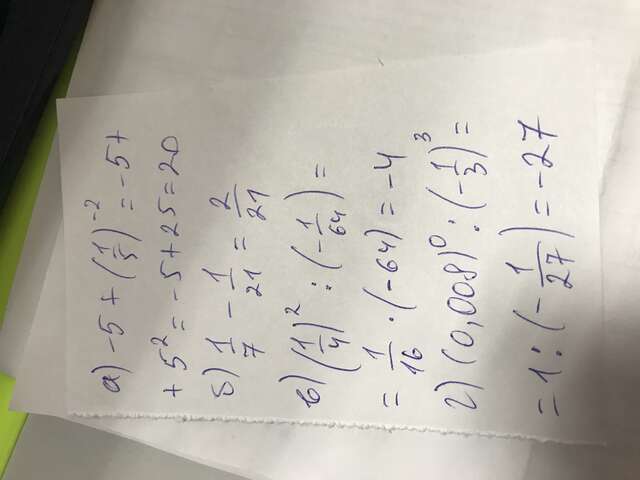 а) -5 + (1/5)^-2 = -5 +
+ 5^2 = -5 + 25 = 20
б) 1/7 - 1/21 = 2/21
в) (1/4)^2 : (-1/64) =
= 1/16 · (-64) = -4
г) (0,008)^0 : (-1/3)^3 =
= 1 : (-1/27) = -27